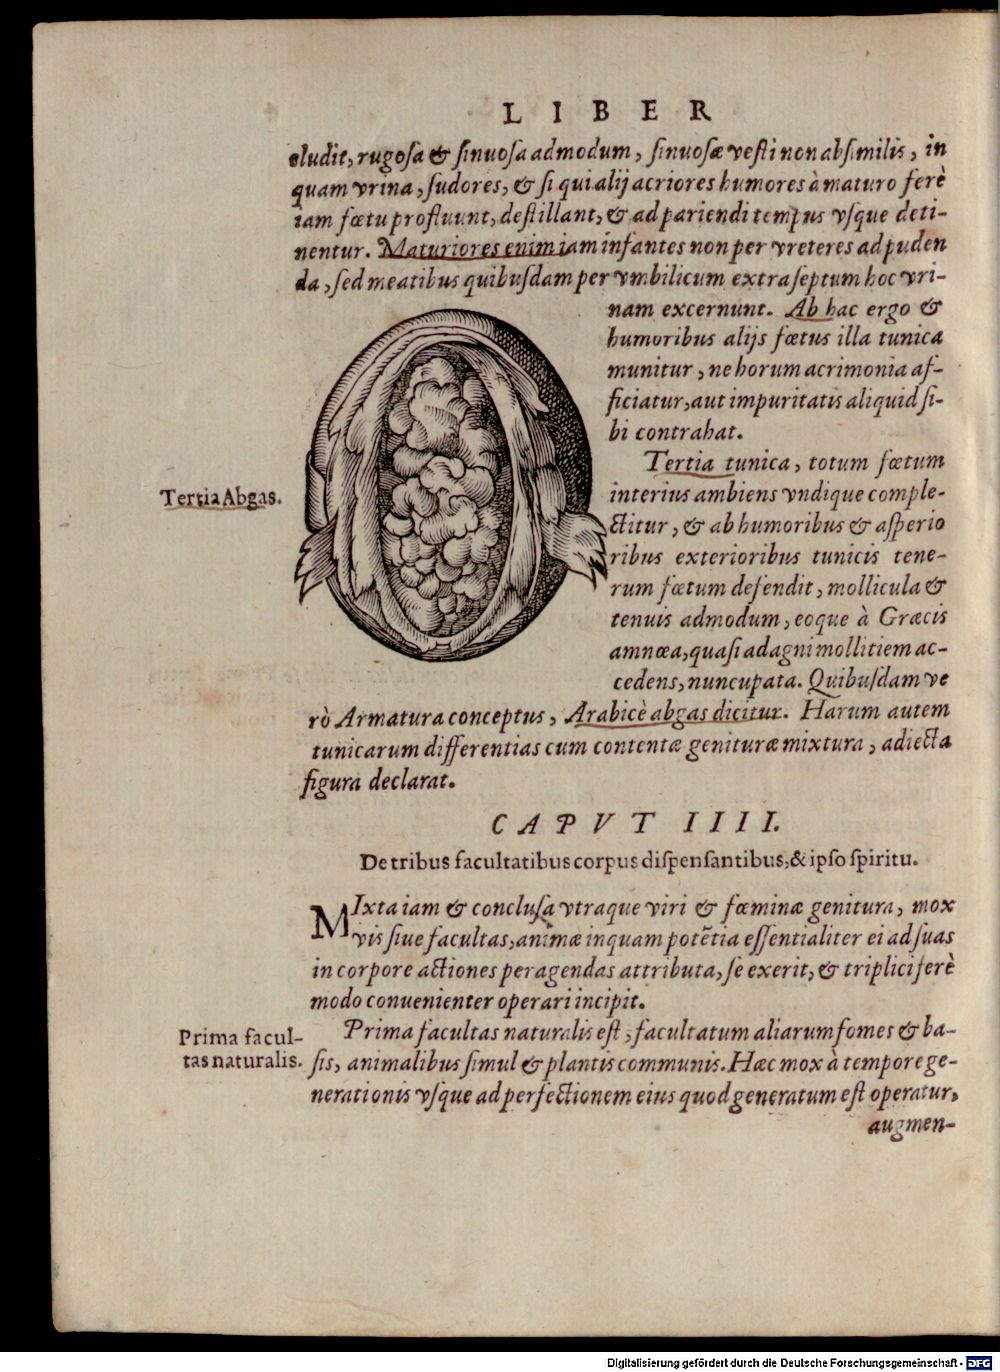 LIBER
cludit, rugosa & sinuosa admodum, sinuosæ vesti non absimilis, in
quam vrina, sudores, & si qui alij acriores humores à maturo ferè
iam fœtu profluunt, destillant, & ad pariendi tempus vsque deti-
nentur. Maturiores enim iam infantes non per vreteres ad puden
da, sed meatibus quibusdam per vmbilicum extra septum hoc vri-
nam excernunt. Ab hac ergo &
humoribus alijs fœtus illa tunica
munitur, ne horum acrimonia af-
ficiatur, aut impuritatis aliquid si-
bi contrahat.
Tertia tunica, totum fœtum
Tertia Abgas.
interius ambiens vndique comple-
ctitur, & ab humoribus & asperio
ribus exterioribus tunicis tene-
rum fœtum defendit, mollicula &
tenuis admodum, eoque à Græcis
amnœa, quasi ad agni mollitiem ac-
cedens, nuncupata. Quibusdam ve
rò Armatura conceptus, Arabicè abgas dicitur. Harum autem
tunicarum differentias cum contentæ genituræ mixtura, adiecta
figura declarat.
CAPVT IIII.
De tribus facultatibus corpus dispensantibus, & ipso spiritu.
MIxta iam & conclusa vtraque viri & fœminæ genitura, mox
vis siue facultas, animæ inquam potẽtia essentialiter ei ad suas
in corpore actiones peragendas attributa, se exerit, & triplici ferè
modo conuenienter operari incipit.
Prima facul-
tas naturalis.
Prima facultas naturalis est, facultatum aliarum fomes & ba-
sis, animalibus simul & plantis communis. Hæc mox à tempore ge-
nerationis vsque ad perfectionem eius quod generatum est operatur,
augmen-
Digitalisierung gefördert durch die Deutsche Forschungsgemeinschaft - DFG